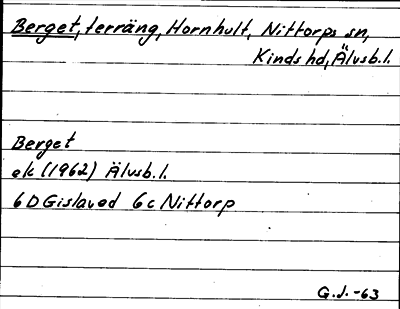 Berget, terräng, Hornhult, Nittorps sn,
Kinds hd, Älvsb.l.
Berget
ek (1962) Älvsb.l.
6D Gislaved 6c Nittorp
G.J.-63